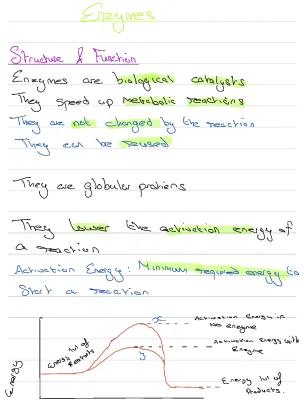 Enzymes
Structure & Function
Enzymes are biological catalysts
They speed up metabolic reactions
They are not changed by the reaction
They can be reused
They are globular protiens
They lower the activation energy of
a reaction
Activation Energy: Minimum required energy to
Start a reaction
x
Activation Energy in
no enzyme
Activation Energy with
Enzyme
y
Energy lvl of
Energy lvl of
Products.
Energy